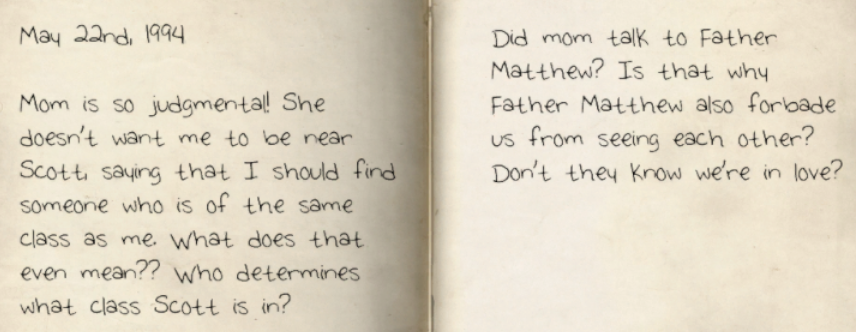 May 22nd, 1994
Mom is so judgmental! She
doesn't want me to be near
Scott, saying that I should find
someone who is of the same
class as me. What does that
even mean?? Who determines
what class Scott is in?
Did mom talk to Father
Matthew? Is that why
Father Matthew also forbade
us from seeing each other?
Don't they know we're in love?